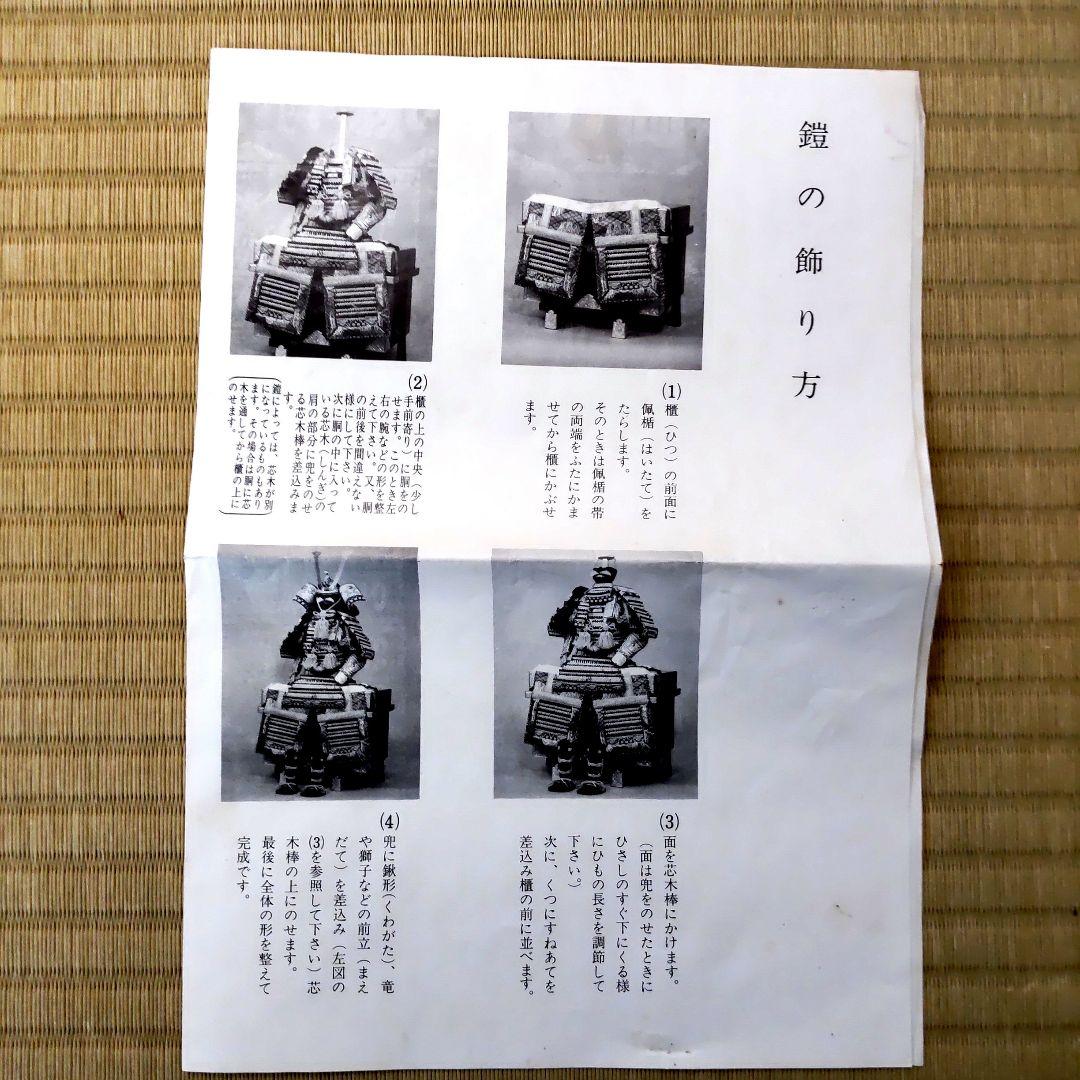 鎧の飾り方
(1)
櫃（ひつ）の前面に
佩楯（はいたて）を
たらします。
そのときは佩楯の帯
の両端をふたにかま
せてから櫃にかぶせ
ます。
(2)
櫃の上の中央（少し
手前寄り）に胴をの
せます。このとき左
右の腕などの形を整
えて下さい。又、胴
の前後を間違えない
様にして下さい。
次に胴の中に入って
いる芯木（しんぎ）の
肩の部分に兜をのせ
る芯木棒を差込みま
す。
鎧によっては、芯木が別
になっているものもあり
ます。その場合は胴に芯
木を通してから櫃の上に
のせます。
(3)
面を芯木棒にかけます。
（面は兜をのせたときに
ひさしのすぐ下にくる様
にひもの長さを調節して
下さい。）
次に、くつにすねあてを
差込み櫃の前に並べます。
(4)
兜に鍬形（くわがた）、竜
や獅子などの前立（まえ
だて）を差込み（左図の
(3)を参照して下さい）芯
木棒の上にのせます。
最後に全体の形を整えて
完成です。